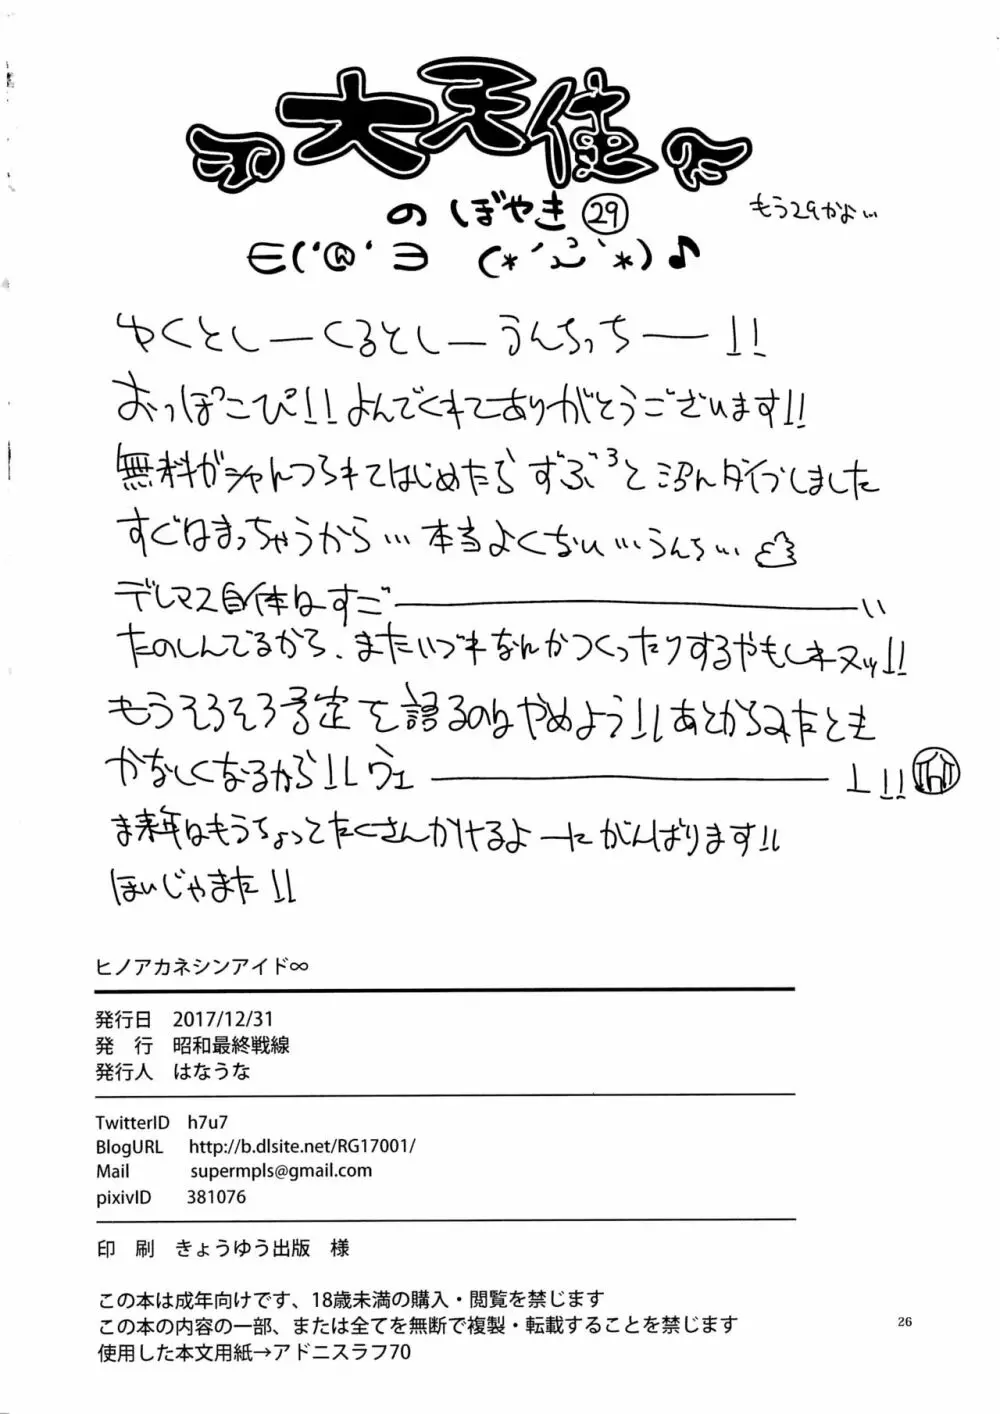 大天使
のぼやき ㉙
もう29かよ…
∈('@'∋ (*´ω`*)♪
ゆくとしーくるとしーうんちっちー!!
おっぽこぴ!!よんでくれてありがとうございます!!
無料ガシャんつられてはじめたらずぶ³と沼んダイブしました
すぐはまっちゃうから…本当よくない…うんち…
デレマス自体はすごーい
たのしんでるから、またいづれなんかつくったりするやもしネヌッ!!
もうそろそろ予定を語るのはやめよう!!あとからみたとき
かなしくなるから!!ヴェー!!
ま来年はもうちょってたくさんかけるよーにがんばります!!
ほいじゃまた!!
ヒノアカネシンアイド∞
発行日 2017/12/31
発 行 昭和最終戦線
発行人 はなうな
TwitterID h7u7
BlogURL http://b.dlsite.net/RG17001/
Mail supermpls@gmail.com
pixivID 381076
印 刷 きょうゆう出版 様
この本は成年向けです、18歳未満の購入・閲覧を禁じます
この本の内容の一部、または全てを無断で複製・転載することを禁じます
使用した本文用紙→アドニスラフ70
26